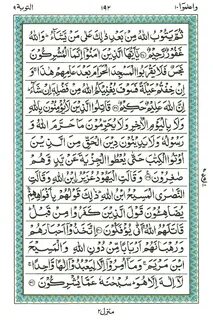 واعلموٓا ١٠ ١٩٢ التوبة ٩
ثُمَّ يَتُوۡبُ اللّٰهُ مِنۡۢ بَعۡدِ ذٰلِكَ عَلٰى مَنۡ يَّشَآءُ‌ؕ وَاللّٰهُ
غَفُوۡرٌ رَّحِيۡمٌ‏ يٰۤاَيُّهَا الَّذِيۡنَ اٰمَنُوۡۤا اِنَّمَا الۡمُشۡرِكُوۡنَ
نَجَسٌ فَلَا يَقۡرَبُوا الۡمَسۡجِدَ الۡحَـرَامَ بَعۡدَ عَامِهِمۡ هٰذَا‌ۚ وَ
اِنۡ خِفۡتُمۡ عَيۡلَةً فَسَوۡفَ يُغۡنِيۡكُمُ اللّٰهُ مِنۡ فَضۡلِهٖۤ اِنۡ شَآءَ‌ؕ
اِنَّ اللّٰهَ عَلِيۡمٌ حَكِيۡمٌ‏ قَاتِلُوا الَّذِيۡنَ لَا يُؤۡمِنُوۡنَ بِاللّٰهِ
وَلَا بِالۡيَوۡمِ الۡاٰخِرِ وَلَا يُحَرِّمُوۡنَ مَا حَرَّمَ اللّٰهُ وَ
رَسُوۡلُهٗ وَلَا يَدِيۡنُوۡنَ دِيۡنَ الۡحَـقِّ مِنَ الَّذِيۡنَ
اُوۡتُوا الۡـكِتٰبَ حَتّٰى يُعۡطُوا الۡجِزۡيَةَ عَنۡ يَّدٍ وَّهُمۡ
صٰغِرُوۡنَ‏ وَقَالَتِ الۡيَهُوۡدُ عُزَيۡرُ ۨابۡنُ اللّٰهِ وَقَالَتِ
النَّصٰرَى الۡمَسِيۡحُ ابۡنُ اللّٰهِ‌ؕ ذٰلِكَ قَوۡلُهُمۡ بِاَ فۡوَاهِهِمۡ‌ۚ
يُضَاهِـئُوۡنَ قَوۡلَ الَّذِيۡنَ كَفَرُوۡا مِنۡ قَبۡلُ‌ؕ
قَاتَلَهُمُ اللّٰهُ‌ۚ اَنّٰى يُؤۡفَكُوۡنَ‏ اِتَّخَذُوۡۤا اَحۡبَارَهُمۡ
وَرُهۡبَانَهُمۡ اَرۡبَابًا مِّنۡ دُوۡنِ اللّٰهِ وَالۡمَسِيۡحَ
ابۡنَ مَرۡيَمَ‌ۚ وَمَاۤ اُمِرُوۡۤا اِلَّا لِيَـعۡبُدُوۡۤا اِلٰهًا وَّاحِدًا‌ۚ
لَاۤ اِلٰهَ اِلَّا هُوَ‌ؕ سُبۡحٰنَهٗ عَمَّا يُشۡرِكُوۡنَ‏
منزل ٢